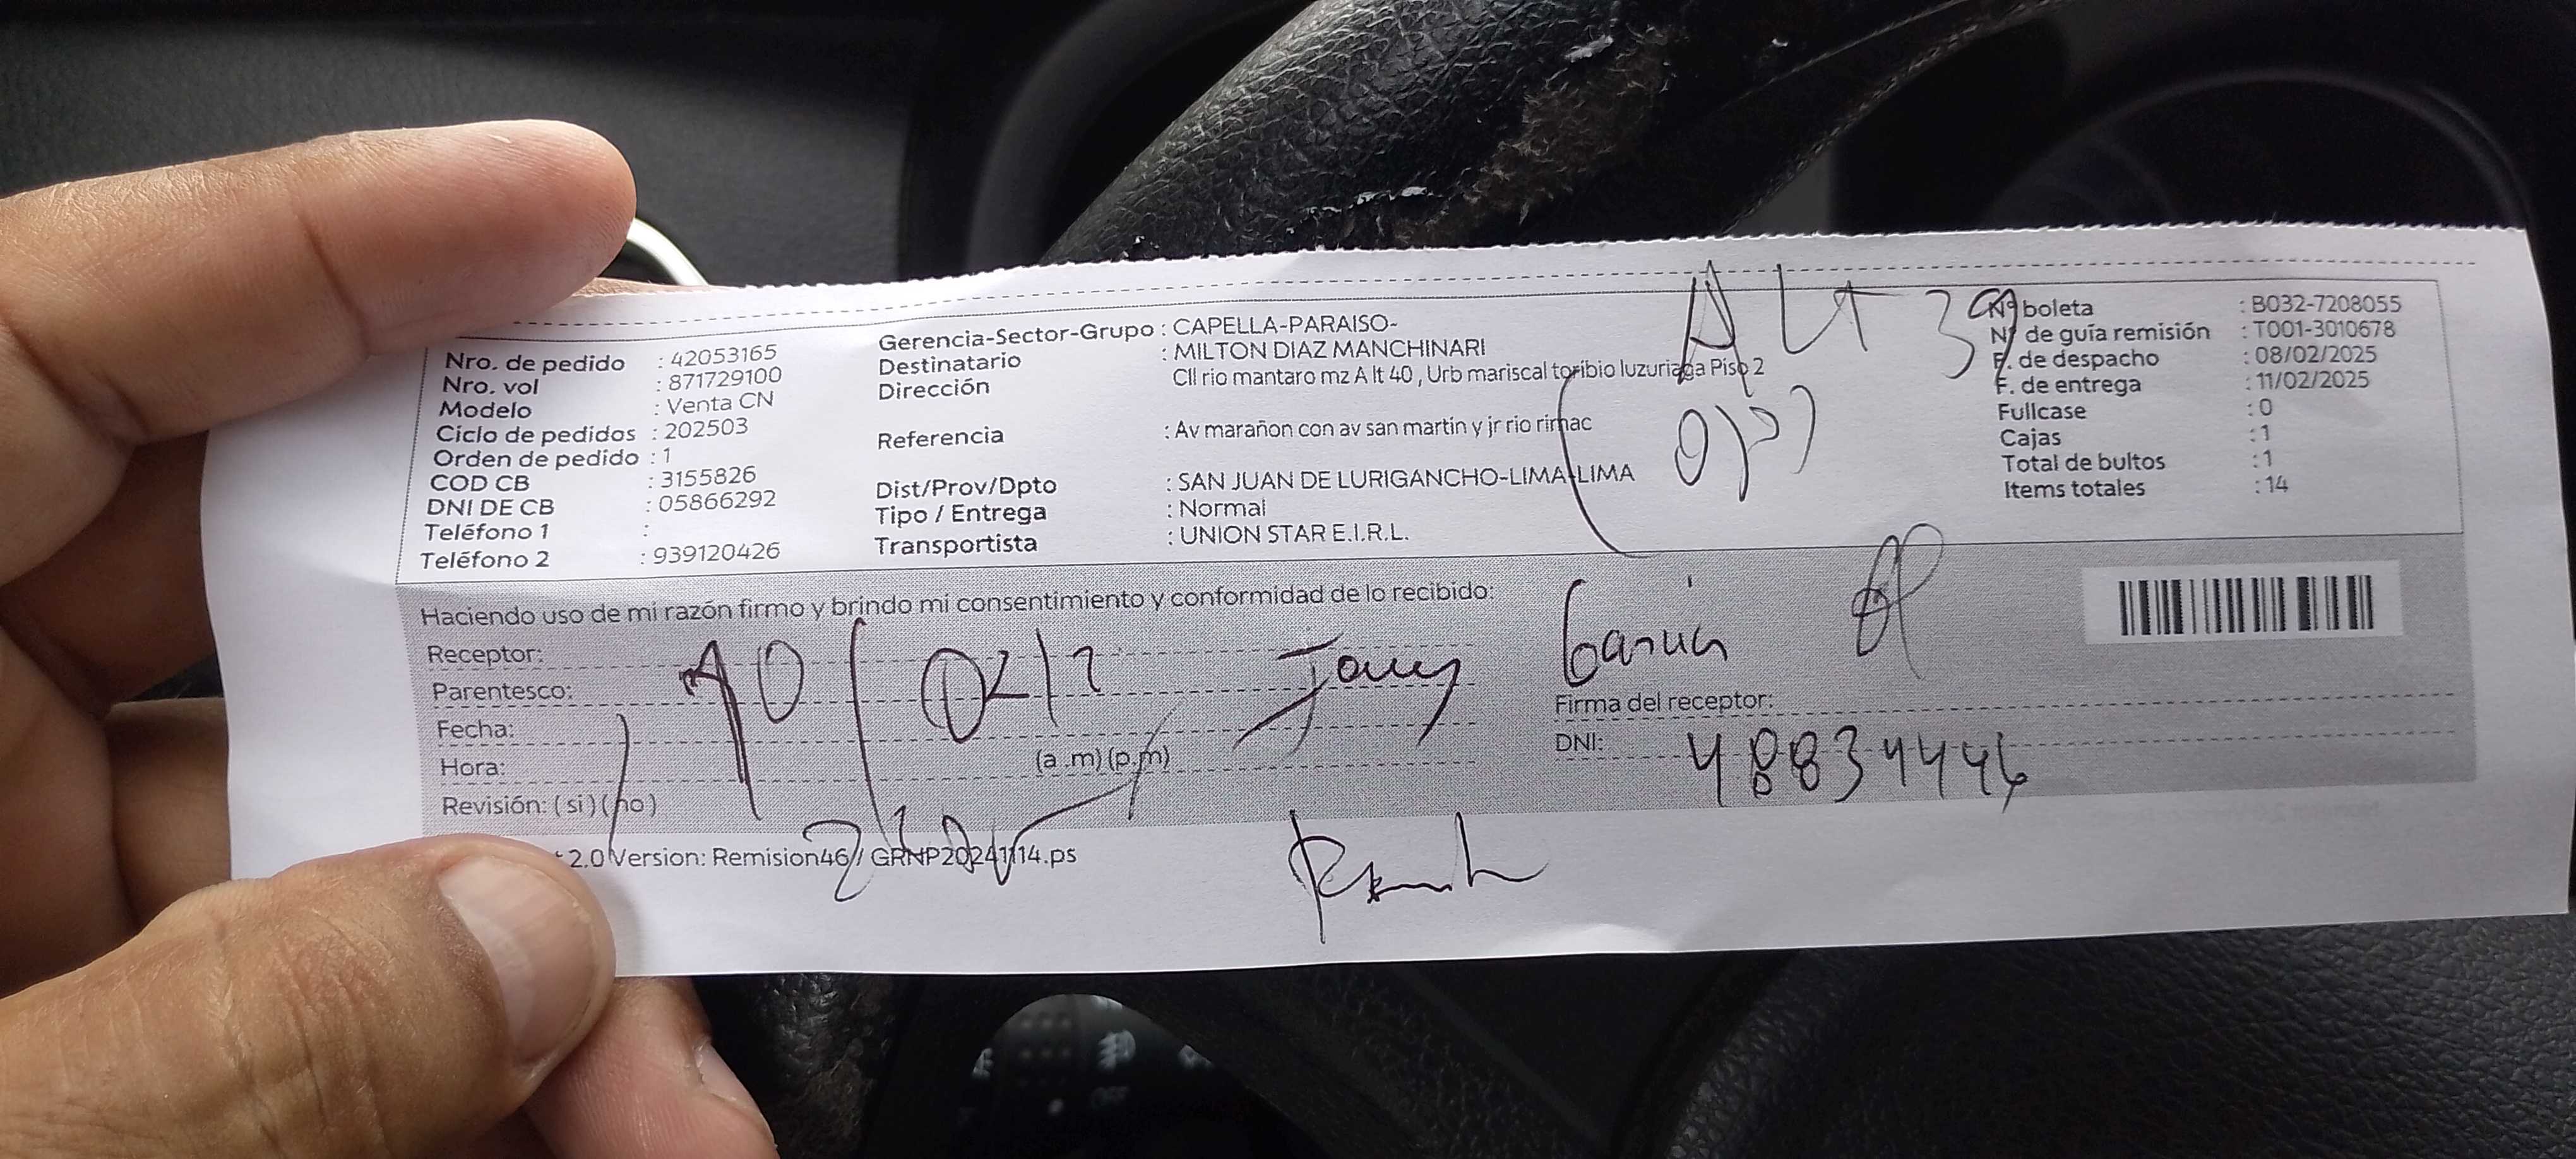 Nro. de pedido : 42053165
Nro. vol : 871729100
Modelo : Venta CN
Ciclo de pedidos : 202503
Orden de pedido : 1
COD CB : 3155826
DNI DE CB : 05866292
Teléfono 1 :
Teléfono 2 : 939120426
Gerencia-Sector-Grupo : CAPELLA-PARAISO-
Destinatario : MILTON DIAZ MANCHINARI
Dirección Cll rio mantaro mz A lt 40 , Urb mariscal toribio luzuriaga Piso 2
Referencia : Av marañon con av san martin y jr rio rimac
Dist/Prov/Dpto : SAN JUAN DE LURIGANCHO-LIMA-LIMA
Tipo / Entrega : Normal
Transportista : UNION STAR E.I.R.L.
A Lt 39
(ojo)
Nº boleta : B032-7208055
Nº de guía remisión : T001-3010678
F. de despacho : 08/02/2025
F. de entrega : 11/02/2025
Fullcase : 0
Cajas : 1
Total de bultos : 1
Items totales : 14
Haciendo uso de mi razón firmo y brindo mi consentimiento y conformidad de lo recibido:
Receptor:
Parentesco:
Fecha:
Hora: (a .m) (p.m)
Revisión: ( si ) ( no )
10/02/2
Garcia
Firma del receptor:
DNI: 48834446
2.0 Version: Remision46 / GRNP20241114.ps